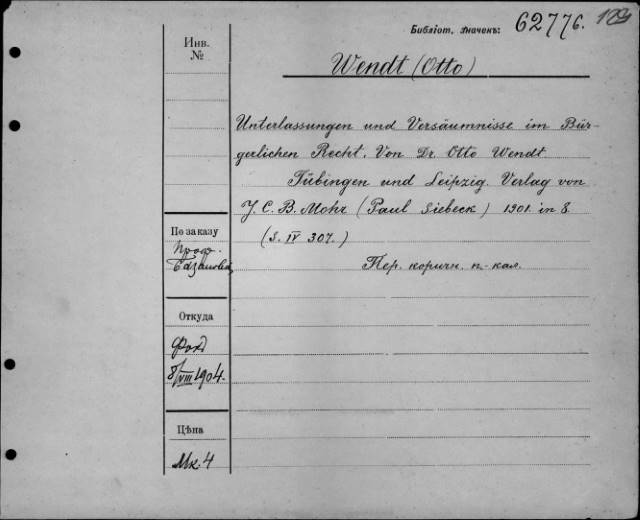 Библіот. значекъ: 62776.
Инв.
№
Wendt (Otto)
Unterlassungen und Versäumnisse im Bür-
gerlichen Recht. Von Dr. Otto Wendt.
Tübingen und Leipzig. Verlag von
J. C. B. Mohr (Paul Siebeck) 1901. in 8.
(S. IV 307.)
Пер. коричн. п.-кол.
По заказу
Проф.
Откуда
8/VIII 1904.
Цѣна
Мк. 4